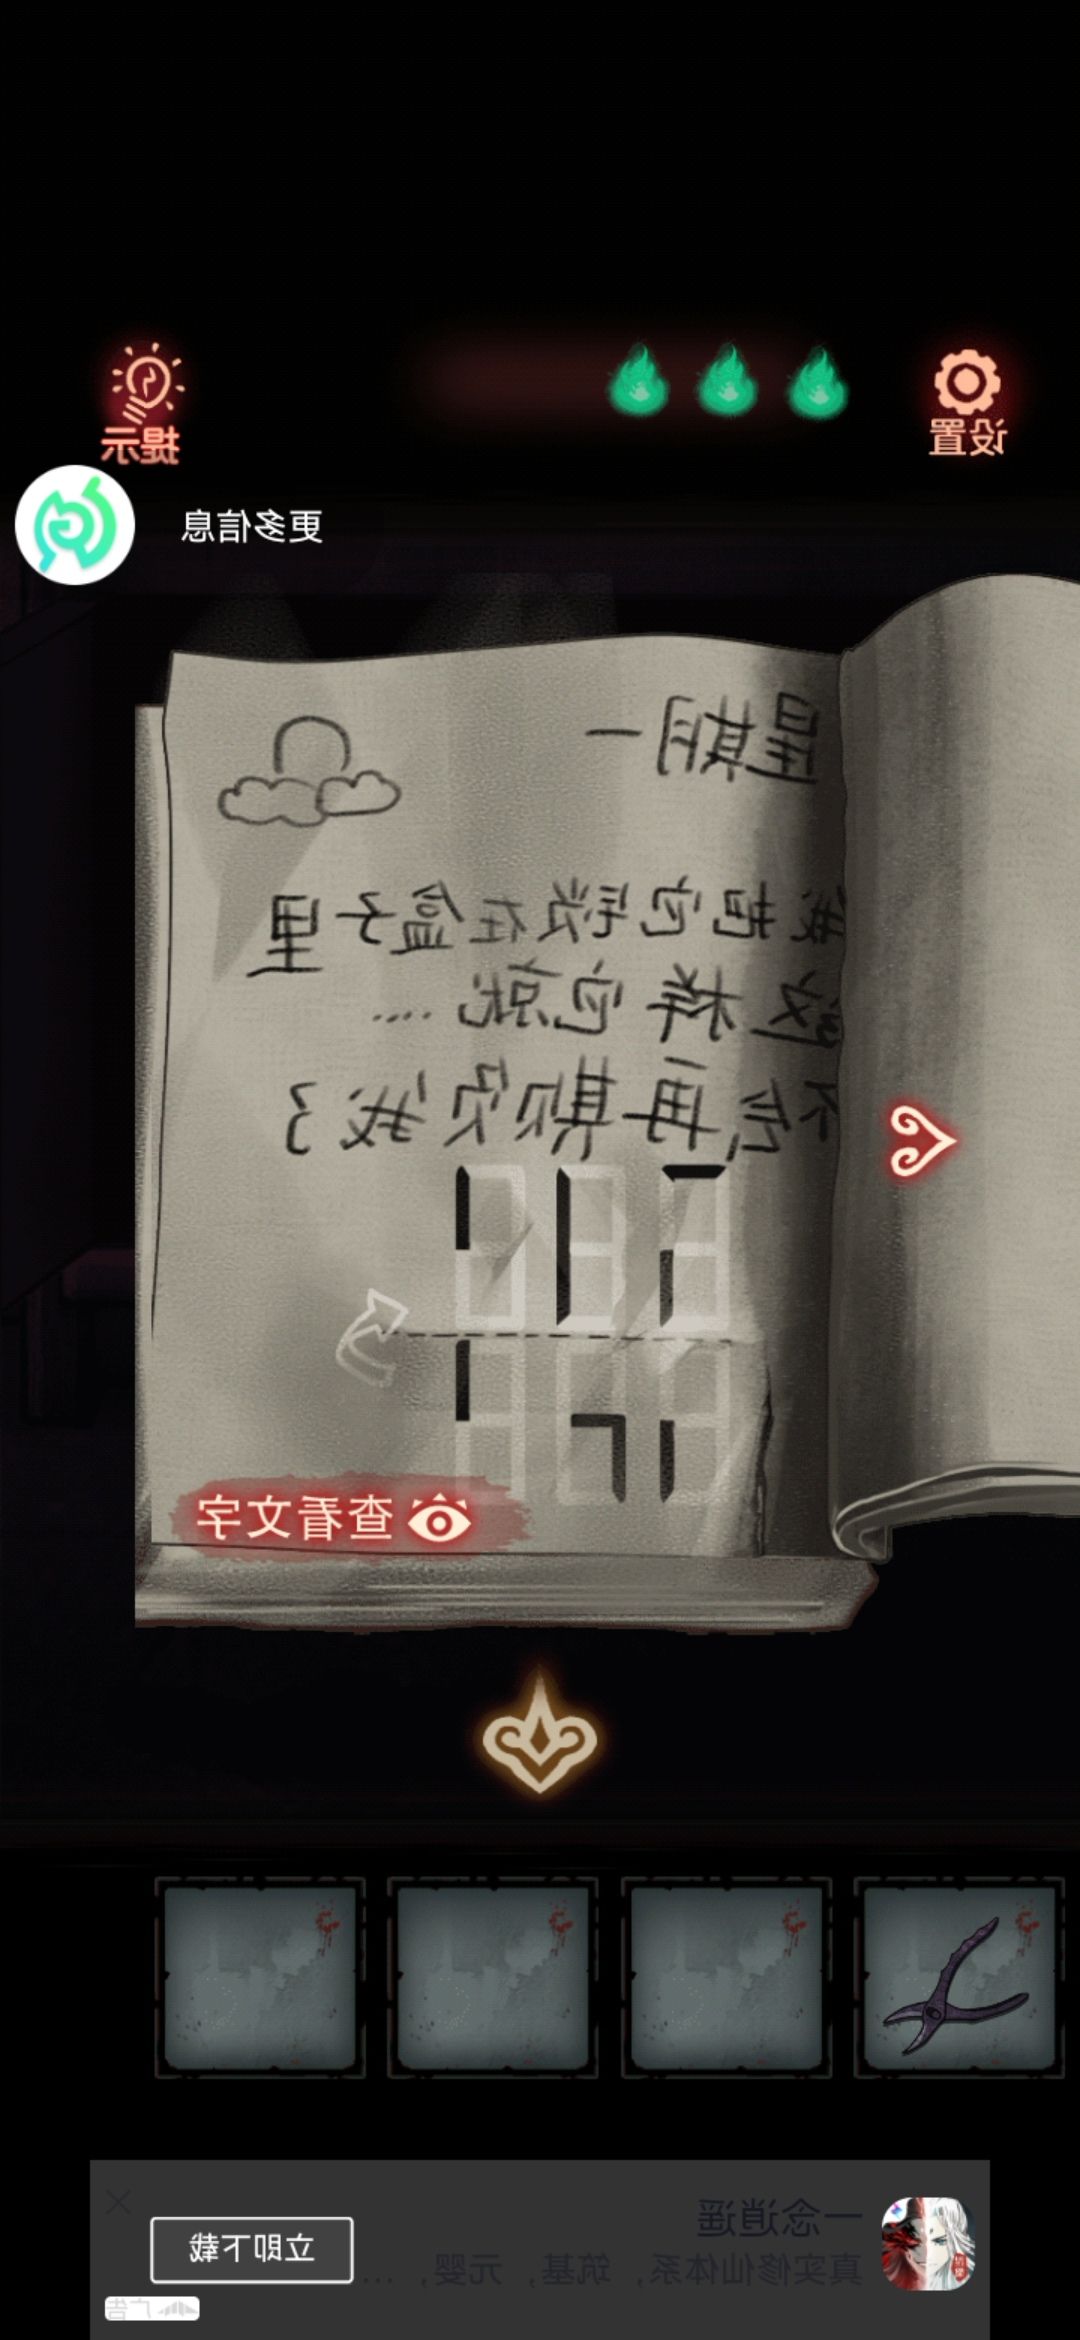 设置
提示
更多信息
星期一
我把它锁在盒子里
这样它就……
不会再欺负我了
查看文字
一念逍遥
真实修仙体系，筑基，元婴，...
立即下载
广告